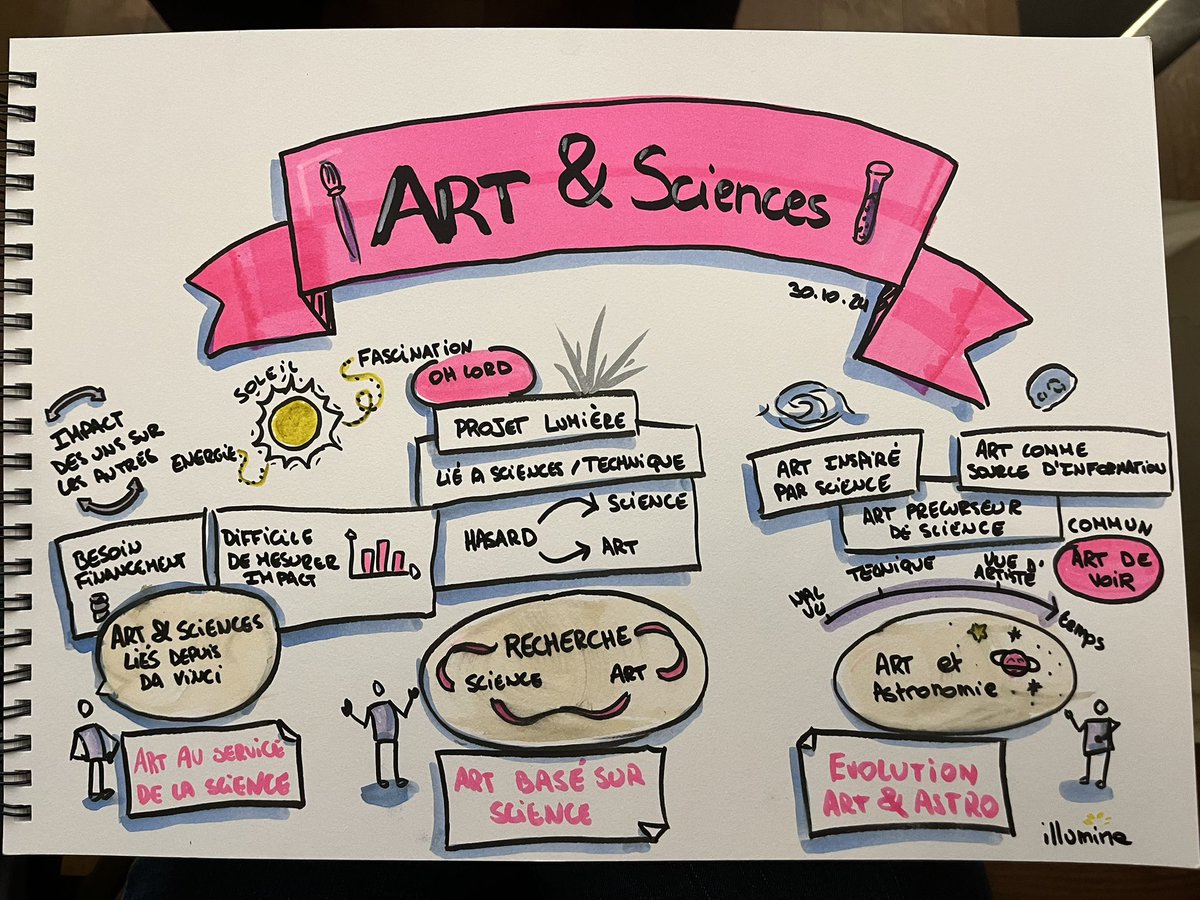 ART & Sciences
30.10.24
IMPACT
DES UNS SUR
LES AUTRES
SOLEIL
ENERGIE
FASCINATION
BESOIN
FINANCEMENT
DIFFICILE
DE MESURER
IMPACT
ART & SCIENCES
LIÉS DEPUIS
DA VINCI
ART AU SERVICE
DE LA SCIENCE
OH LORD
PROJET LUMIÈRE
LIÉ A SCIENCES / TECHNIQUE
HASARD
SCIENCE
ART
RECHERCHE
SCIENCE
ART
ART BASÉ SUR
SCIENCE
ART INSPIRÉ
PAR SCIENCE
ART COMME
SOURCE D'INFORMATION
ART PRECURSEUR
DE SCIENCE
COMMUN
ART DE
VOIR
TECNIQUE
VUE D'
ARTISTE
temps
ART et
Astronomie
EVOLUTION
ART & ASTRO
illumine